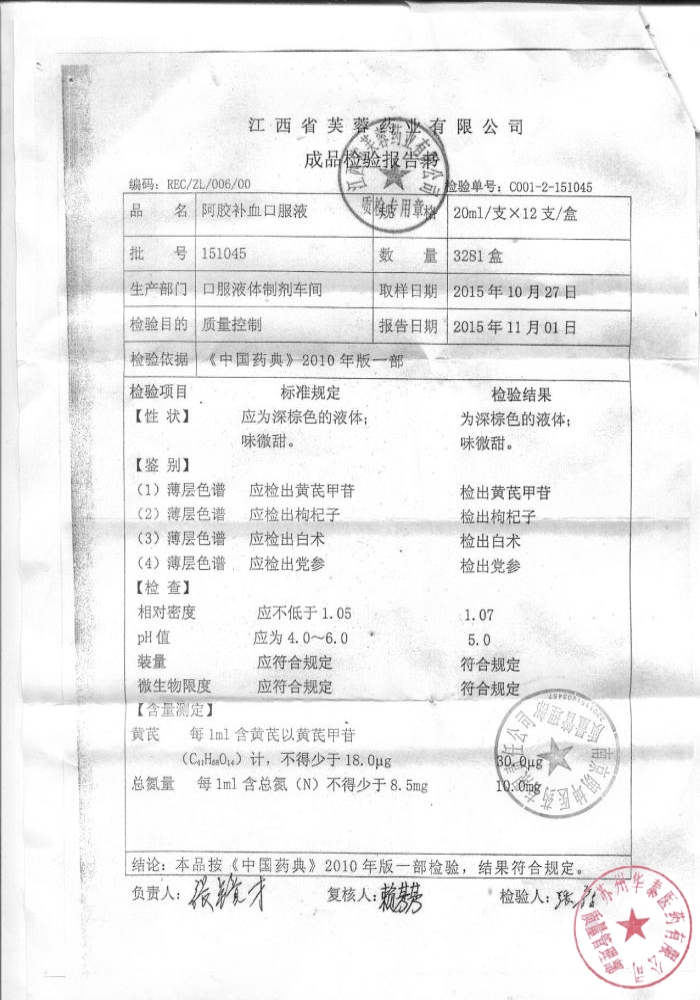 江西省芙蓉药业有限公司
成品检验报告书
编码：REC/ZL/006/00 检验单号：C001-2-151045
品 名 阿胶补血口服液 规 格 20ml/支×12支/盒
批 号 151045 数 量 3281盒
生产部门 口服液体制剂车间 取样日期 2015年10月27日
检验目的 质量控制 报告日期 2015年11月01日
检验依据 《中国药典》2010年版一部
检验项目 标准规定 检验结果
【性 状】 应为深棕色的液体； 为深棕色的液体；
味微甜。 味微甜。
【鉴 别】
（1）薄层色谱 应检出黄芪甲苷 检出黄芪甲苷
（2）薄层色谱 应检出枸杞子 检出枸杞子
（3）薄层色谱 应检出白术 检出白术
（4）薄层色谱 应检出党参 检出党参
【检 查】
相对密度 应不低于1.05 1.07
pH值 应为4.0～6.0 5.0
装量 应符合规定 符合规定
微生物限度 应符合规定 符合规定
【含量测定】
黄芪 每1ml含黄芪以黄芪甲苷
（C₄₁H₆₈O₁₄）计，不得少于18.0μg 30.0μg
总氮量 每1ml含总氮（N）不得少于8.5mg 10.0mg
结论：本品按《中国药典》2010年版一部检验，结果符合规定。
负责人： 复核人： 检验人：
质检专用章
质量管理部
苏州华泰医药有限公司